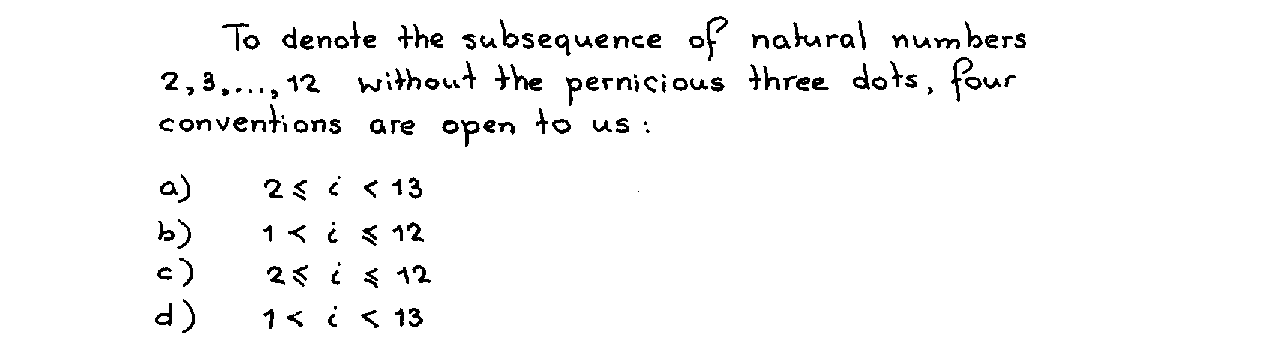 To denote the subsequence of natural numbers
2,3,...,12 without the pernicious three dots, four
conventions are open to us :
a) 2 ≤ i < 13
b) 1 < i ≤ 12
c) 2 ≤ i ≤ 12
d) 1 < i < 13